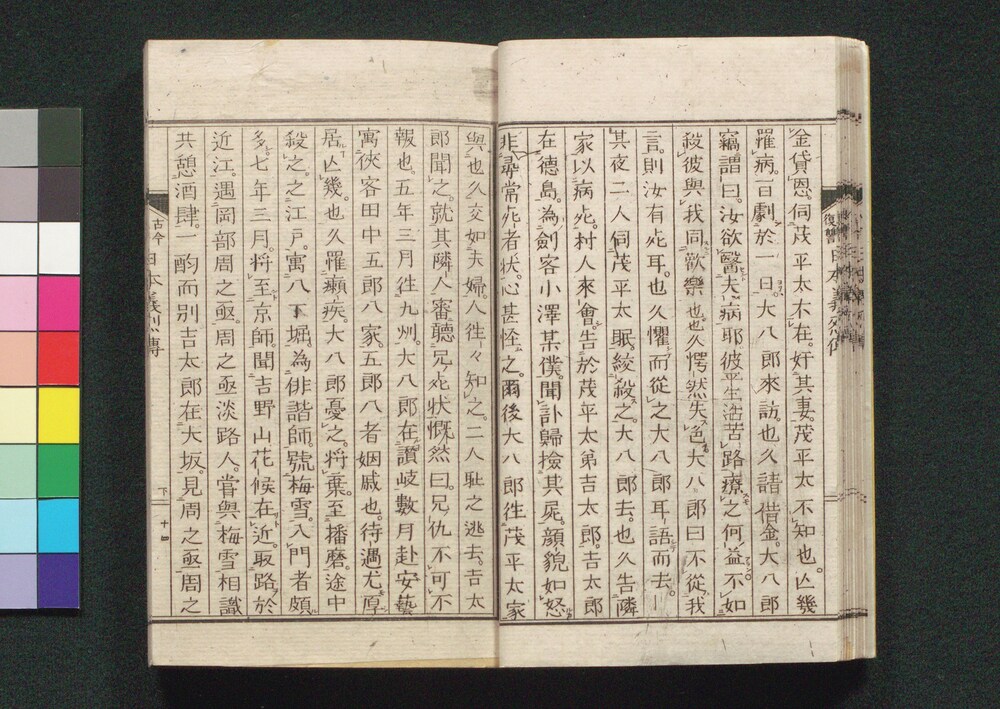 金貸恩。伺茂平太不在。奸其妻。茂平太不知也。亾幾
罹病。百劇於一日。大八郎來訪也久請借金。大八郎
竊謂曰。汝欲醫夫病耶彼平生活苦路療之何益。不如
殺彼與我同歓樂也。也久愕然失色。大八郎曰不從我
言。則汝有死耳。也久懼而從之大八郎耳語而去。
其夜二人伺茂平太眠。絞殺之。大八郎去。也久告隣
家以病死。村人來會。告於茂平太弟吉太郎。吉太郎
在德島。為劍客小澤某僕。聞訃歸撿其屍。顔貌如怒
非尋常死者状。心甚怪之。爾後大八郎徃茂平太家
與也久交如夫婦。人徃々知之。二人耻之逃去。吉太
郎聞之。就其隣人審聽兄死状慨然曰。兄仇不可不
報也。五年三月徃九州。大八郎在讚岐數月赴安藝
寓俠客田中五郎八家。五郎八者姻戚也。待遇尤厚
居亾幾。也久罹癩疾大八郎憂之。將棄。至播磨。途中
殺之。之江戸。寓八丁堀。為俳諧師。號梅雪。入門者頗
多。七年三月。將至京師。聞吉野山花候在近。取路於
近江。遇岡部周之亟。周之亟淡路人。嘗與梅雪相識
共憩酒肆。一酌而別吉太郎在大坂。見周之亟周之
復讐
古今日本義烈傳
下
十四